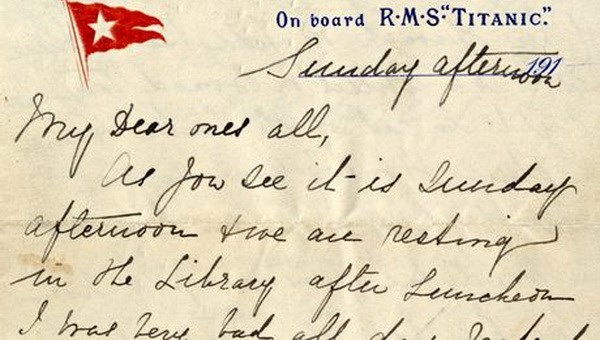 On board R·M·S·"TITANIC."
191
Sunday afternoon
My Dear ones all,
As you see it is Sunday
afternoon & we are resting
in the Library after Luncheon
I was very bad all day